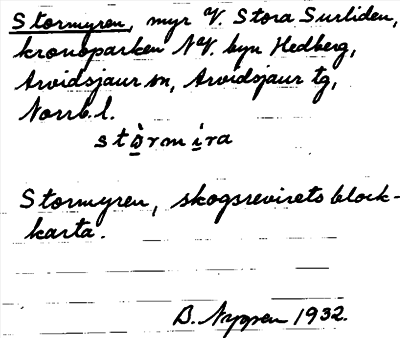 Stormyren, myr V. Stora Surliden,
kronoparken NV. byn Hedberg,
Arvidsjaur sn, Arvidsjaur tg,
Norrb. l.
stòrmira
Stormyren, skogsrevirets block-
karta.
B. Nyppen 1932.